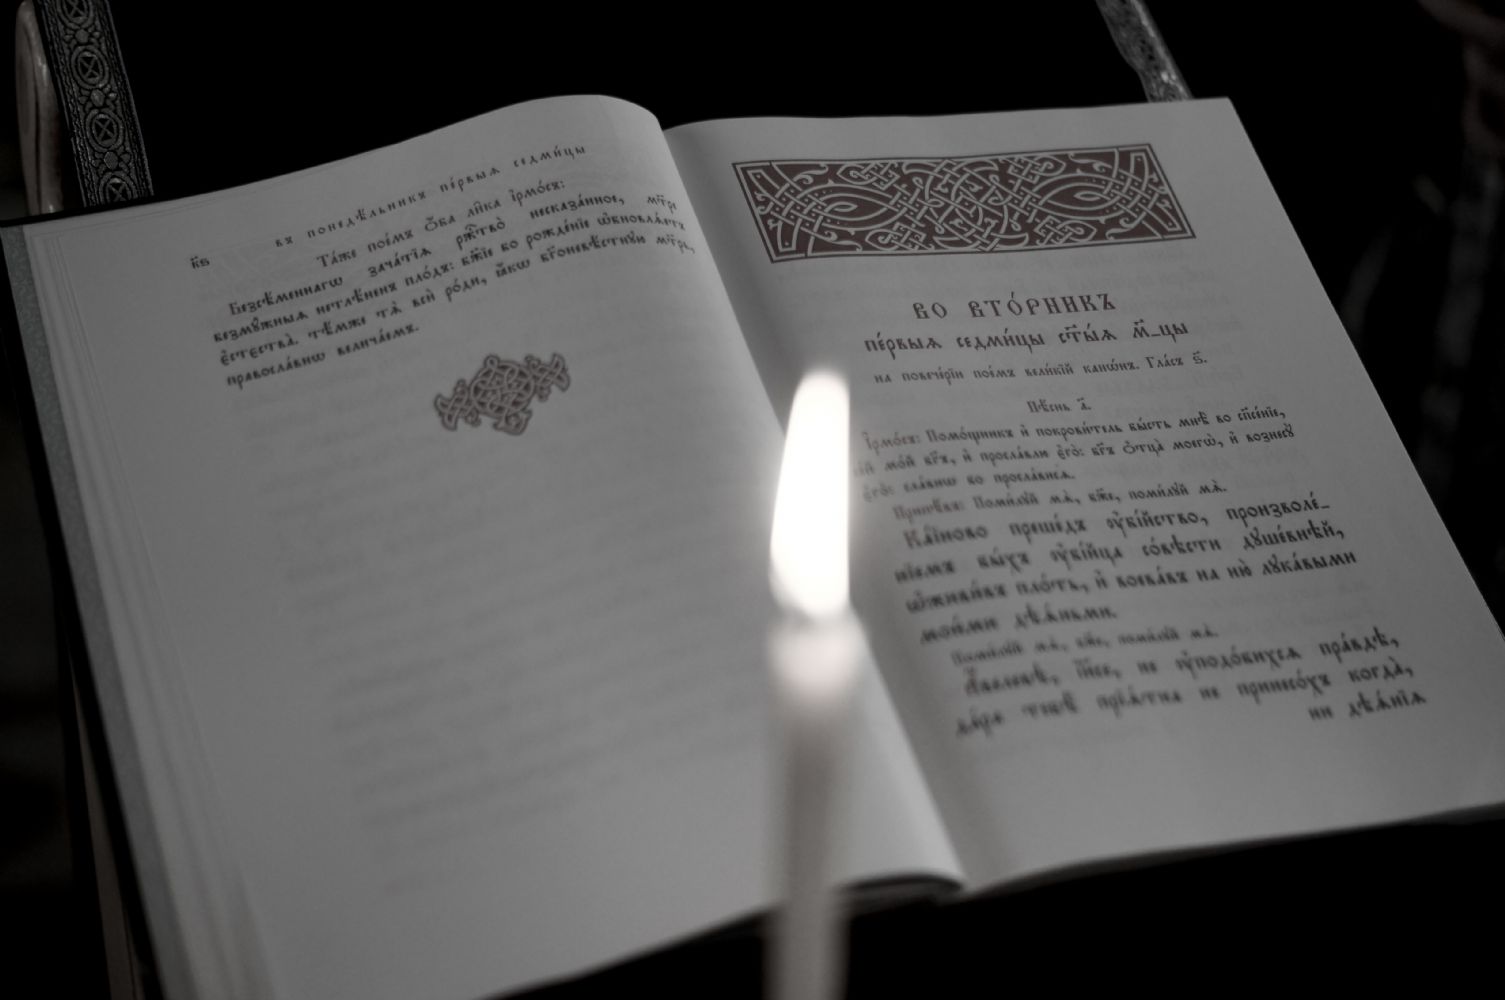 к҃ѕ
въ понедѣ́льникъ пе́рвыѧ седми́цы
Та́же пое́мъ ѻ҆́ба ли́ка і҆рмо́съ:
Безсѣ́меннагѡ зача́тїѧ ржⷭ҇тво̀ несказа́нное, мт҃ре
безмꙋ́жныѧ нетлѣ́ненъ пло́дъ: бж҃їе бо рожде́нїе ѡ҆бновлѧ́етъ
є҆стєства̀. тѣ́мже тѧ̀ всѝ ро́ди, ꙗ҆́кѡ бг҃оневѣ́стнꙋю мт҃рь,
правосла́внѡ велича́емъ.
ВО ВТО́РНИКЪ
пе́рвыѧ седми́цы ст҃ы́ѧ м҃_цы
на повече́рїи пое́мъ вели́кїй канѡ́нъ. Гла́съ ѕ҃.
Пѣ́снь а҃.
І҆рмо́съ: Помо́щникъ и҆ покрови́тель бы́сть мнѣ̀ во спⷭ҇е́нїе,
мо́й бг҃ъ, и҆ просла́влю є҆го̀: бг҃ъ ѻ҆тца̀ моегѡ̀, и҆ вознесꙋ̀
є҆го̀: сла́внѡ бо просла́висѧ.
Припѣ́въ: Поми́лꙋй мѧ̀, бж҃е, поми́лꙋй мѧ̀.
Ка́їново преше́дъ ᲂу҆бі́йство, произволе́_
нїемъ бы́хъ ᲂу҆бі́йца со́вѣсти дꙋше́внѣй,
ѡ҆живи́въ пло́ть, и҆ воева́въ на ню̀ лꙋка́выми
мои́ми дѣѧ́ньми.
Поми́лꙋй мѧ̀, бж҃е, поми́лꙋй мѧ̀.
А҆́велевѣ, і҆и҃се, не ᲂу҆подо́бихсѧ пра́вдѣ,
да́ра тебѣ̀ прїѧ́тна не принесо́хъ когда̀,
ни дѣѧ́нїѧ